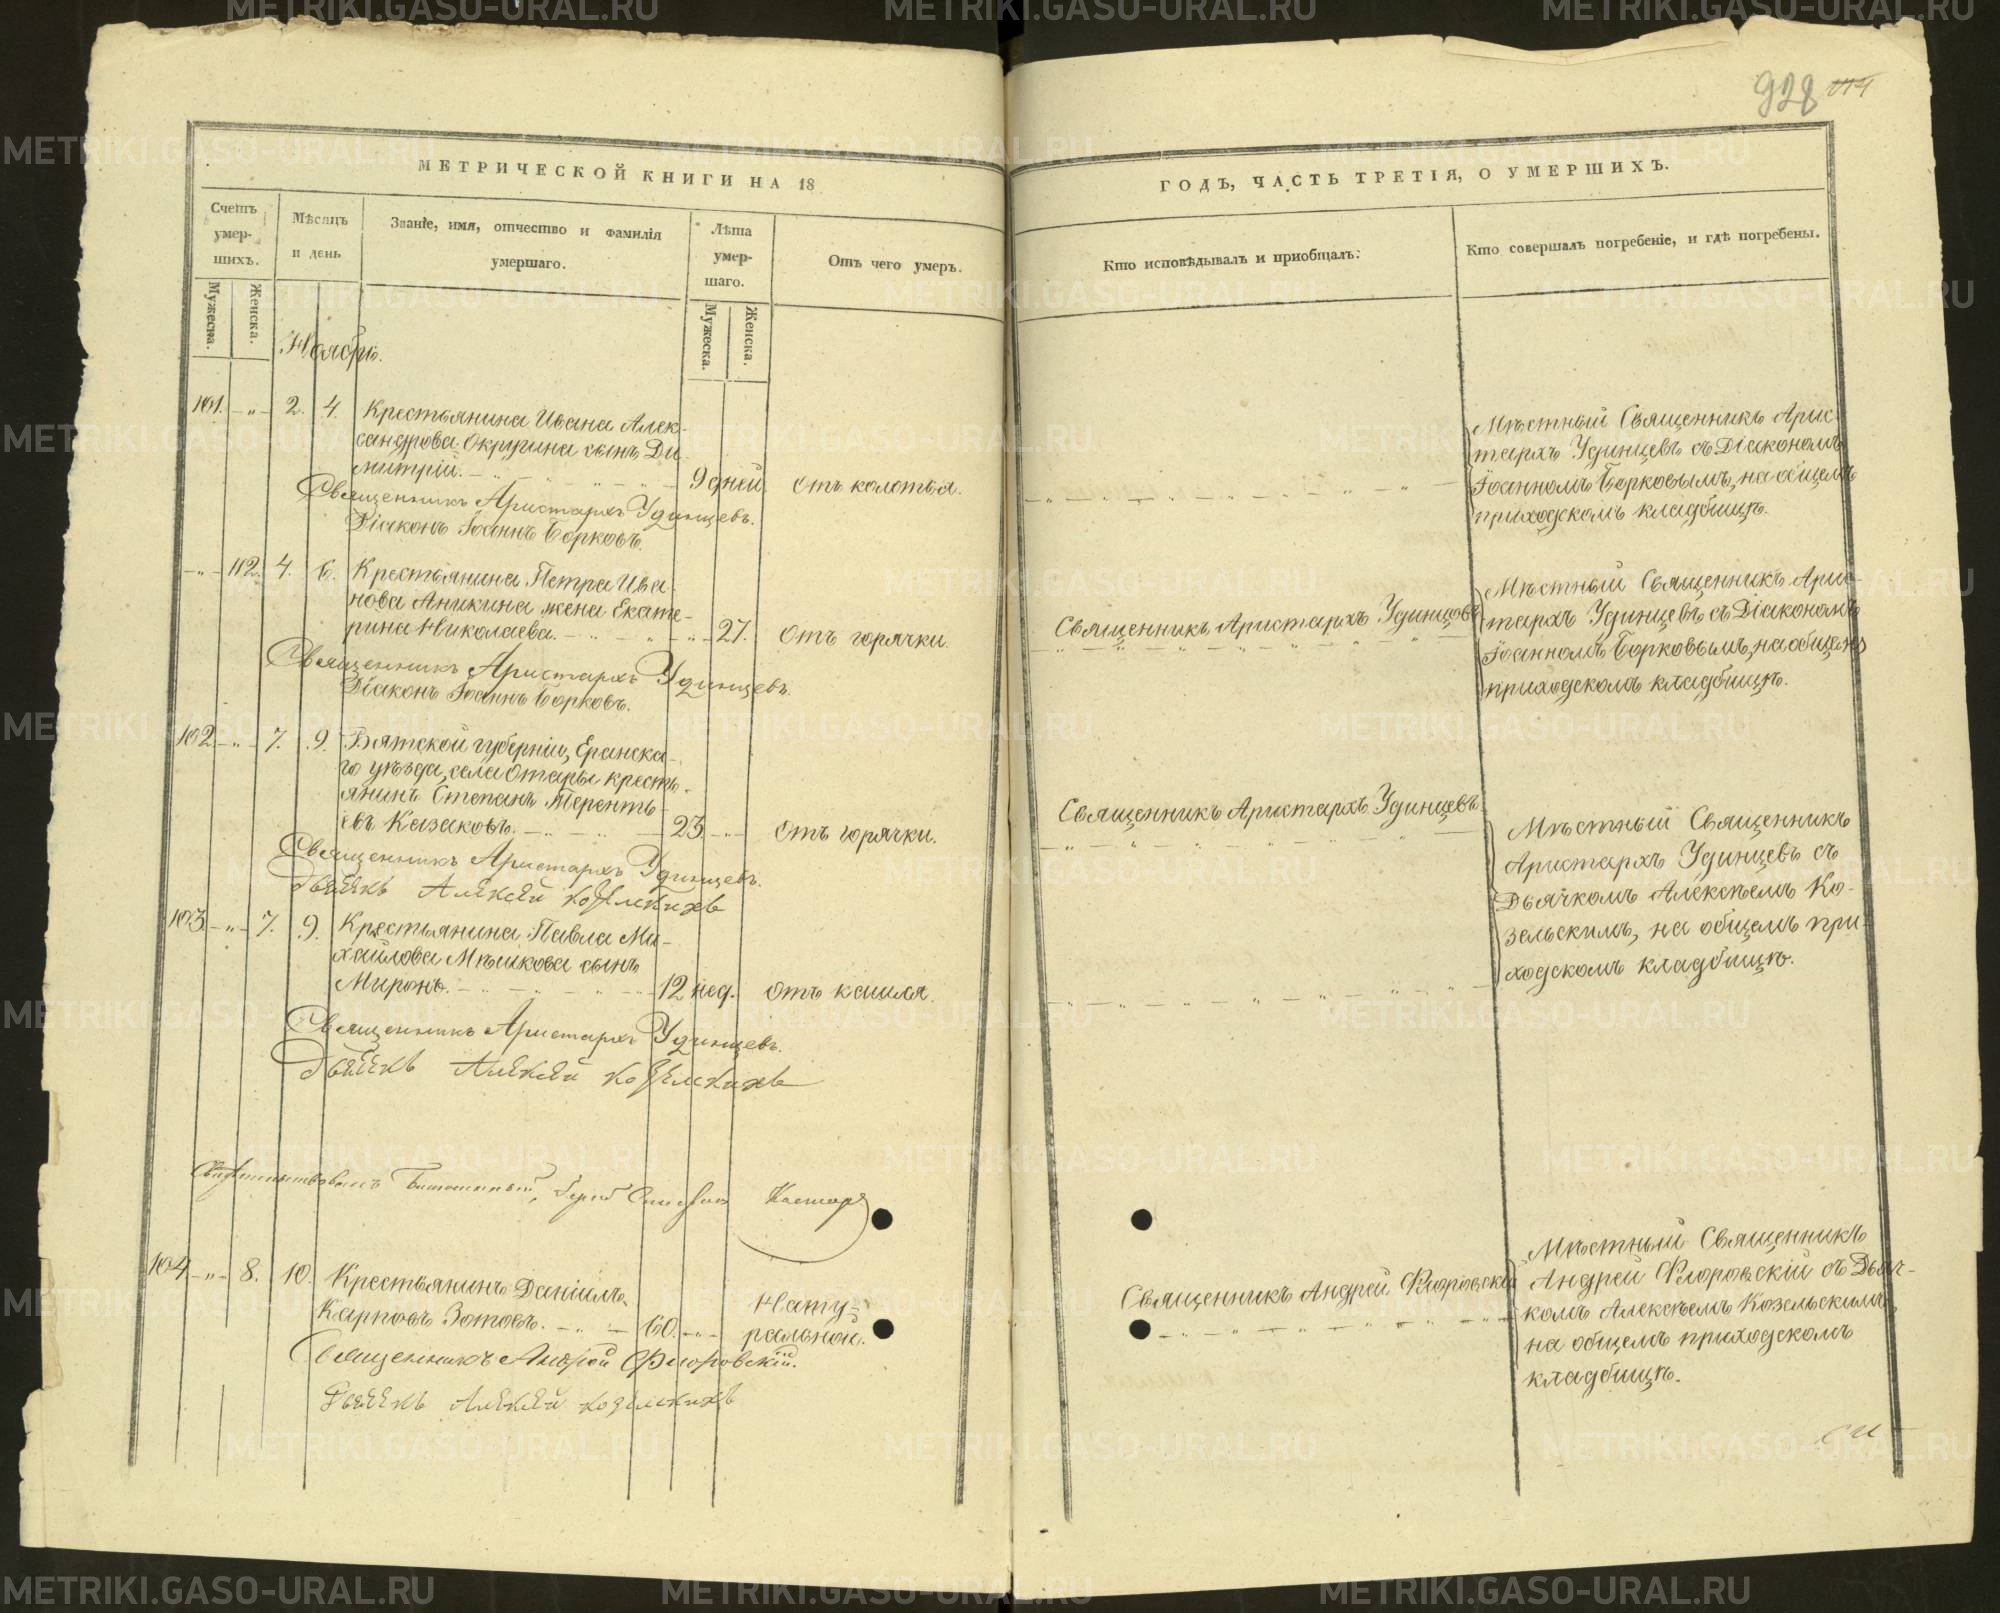 928 114
МЕТРИЧЕСКОЙ КНИГИ НА 18
ГОДЪ, ЧАСТЬ ТРЕТІЯ, О УМЕРШИХЪ.
Счетъ умер-шихъ.
Мужеска.
Женска.
Мѣсяцъ и день
Званіе, имя, отчество и фамилія
умершаго.
Лѣта умер-шаго.
Мужеска.
Женска.
Отъ чего умеръ.
Кто исповѣдывалъ и приобщалъ:
Кто совершалъ погребеніе, и гдѣ погребены.
Ноябрь.
101. — „ — 2. 4. Крестьянина Ивана Алек-
сандрова Окружина сынъ Ди-
митрій. 9 дней. Отъ колотья.
Священникъ Аристархъ Удинцевъ.
Діаконъ Іоаннъ Борковъ.
Мѣстный Священникъ Арис-
тархъ Удинцевъ съ Діакономъ
Іоанномъ Борковымъ, на общемъ
приходскомъ кладбищѣ.
— „ — 112. 4. 6. Крестьянина Петра Ива-
нова Аникина жена Екате-
рина Николаева. 27. Отъ горячки.
Священникъ Аристархъ Удинцевъ.
Діаконъ Іоаннъ Борковъ.
Священникъ Аристархъ Удинцовъ
Мѣстный Священникъ Арис-
тархъ Удинцевъ съ Діакономъ
Іоанномъ Борковымъ, на общемъ
приходскомъ кладбищѣ.
102 — „ — 7. 9. Вятской губерніи, Еранска-
го уѣзда, села Отары кресть-
янинъ Степанъ Теренть-
евъ Казаковъ. 23 — „ — Отъ горячки.
Священникъ Аристархъ Удинцевъ.
Дьячекъ Алексей Козелскихъ
Священникъ Аристархъ Удинцевъ
Мѣстный Священникъ
Аристархъ Удинцевъ съ
Дьячкомъ Алексѣемъ Ко-
зельскимъ, на общемъ при-
ходскомъ кладбищѣ.
103 — „ — 7. 9. Крестьянина Павла Ми-
хайлова Мѣшкова сынъ
Миронъ. 12 нед. Отъ кашля.
Священникъ Аристархъ Удинцевъ.
Дьячекъ Алексей Козелскихъ
Свидѣтельствовалъ
104 — „ — 8. 10. Крестьянинъ Даніилъ
Карповъ Зотовъ. 60. — „ — Нату-
ральною.
Священникъ Андрей Флоровскій.
Дьячекъ Алексей Козелскихъ
Священникъ Андрей Флоровскій
Мѣстный Священникъ
Андрей Флоровскій съ Дьяч-
комъ Алексѣемъ Козельскимъ,
на общемъ приходскомъ
кладбищѣ.
METRIKI.GASO-URAL.RU